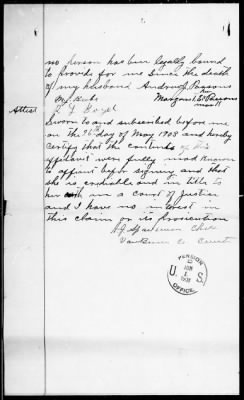 no person has been legally bound
to provide for me since the death
of my husband Andrew J Parsons
her
Margaret E Parsons
mark
Attest
Sworn to and subscribed before me
on the 26th day of May 1908 and hereby
certify that the contents of this
affidavit were fully made known
to affiant before signing and that
she is creditable and in title to
her oath in a court of Justice
and I have no interest in
this claim or its prosecution
Clerk
Van Buren Co Court
PENSION
JUN
1
1908
U. S.
OFFICE